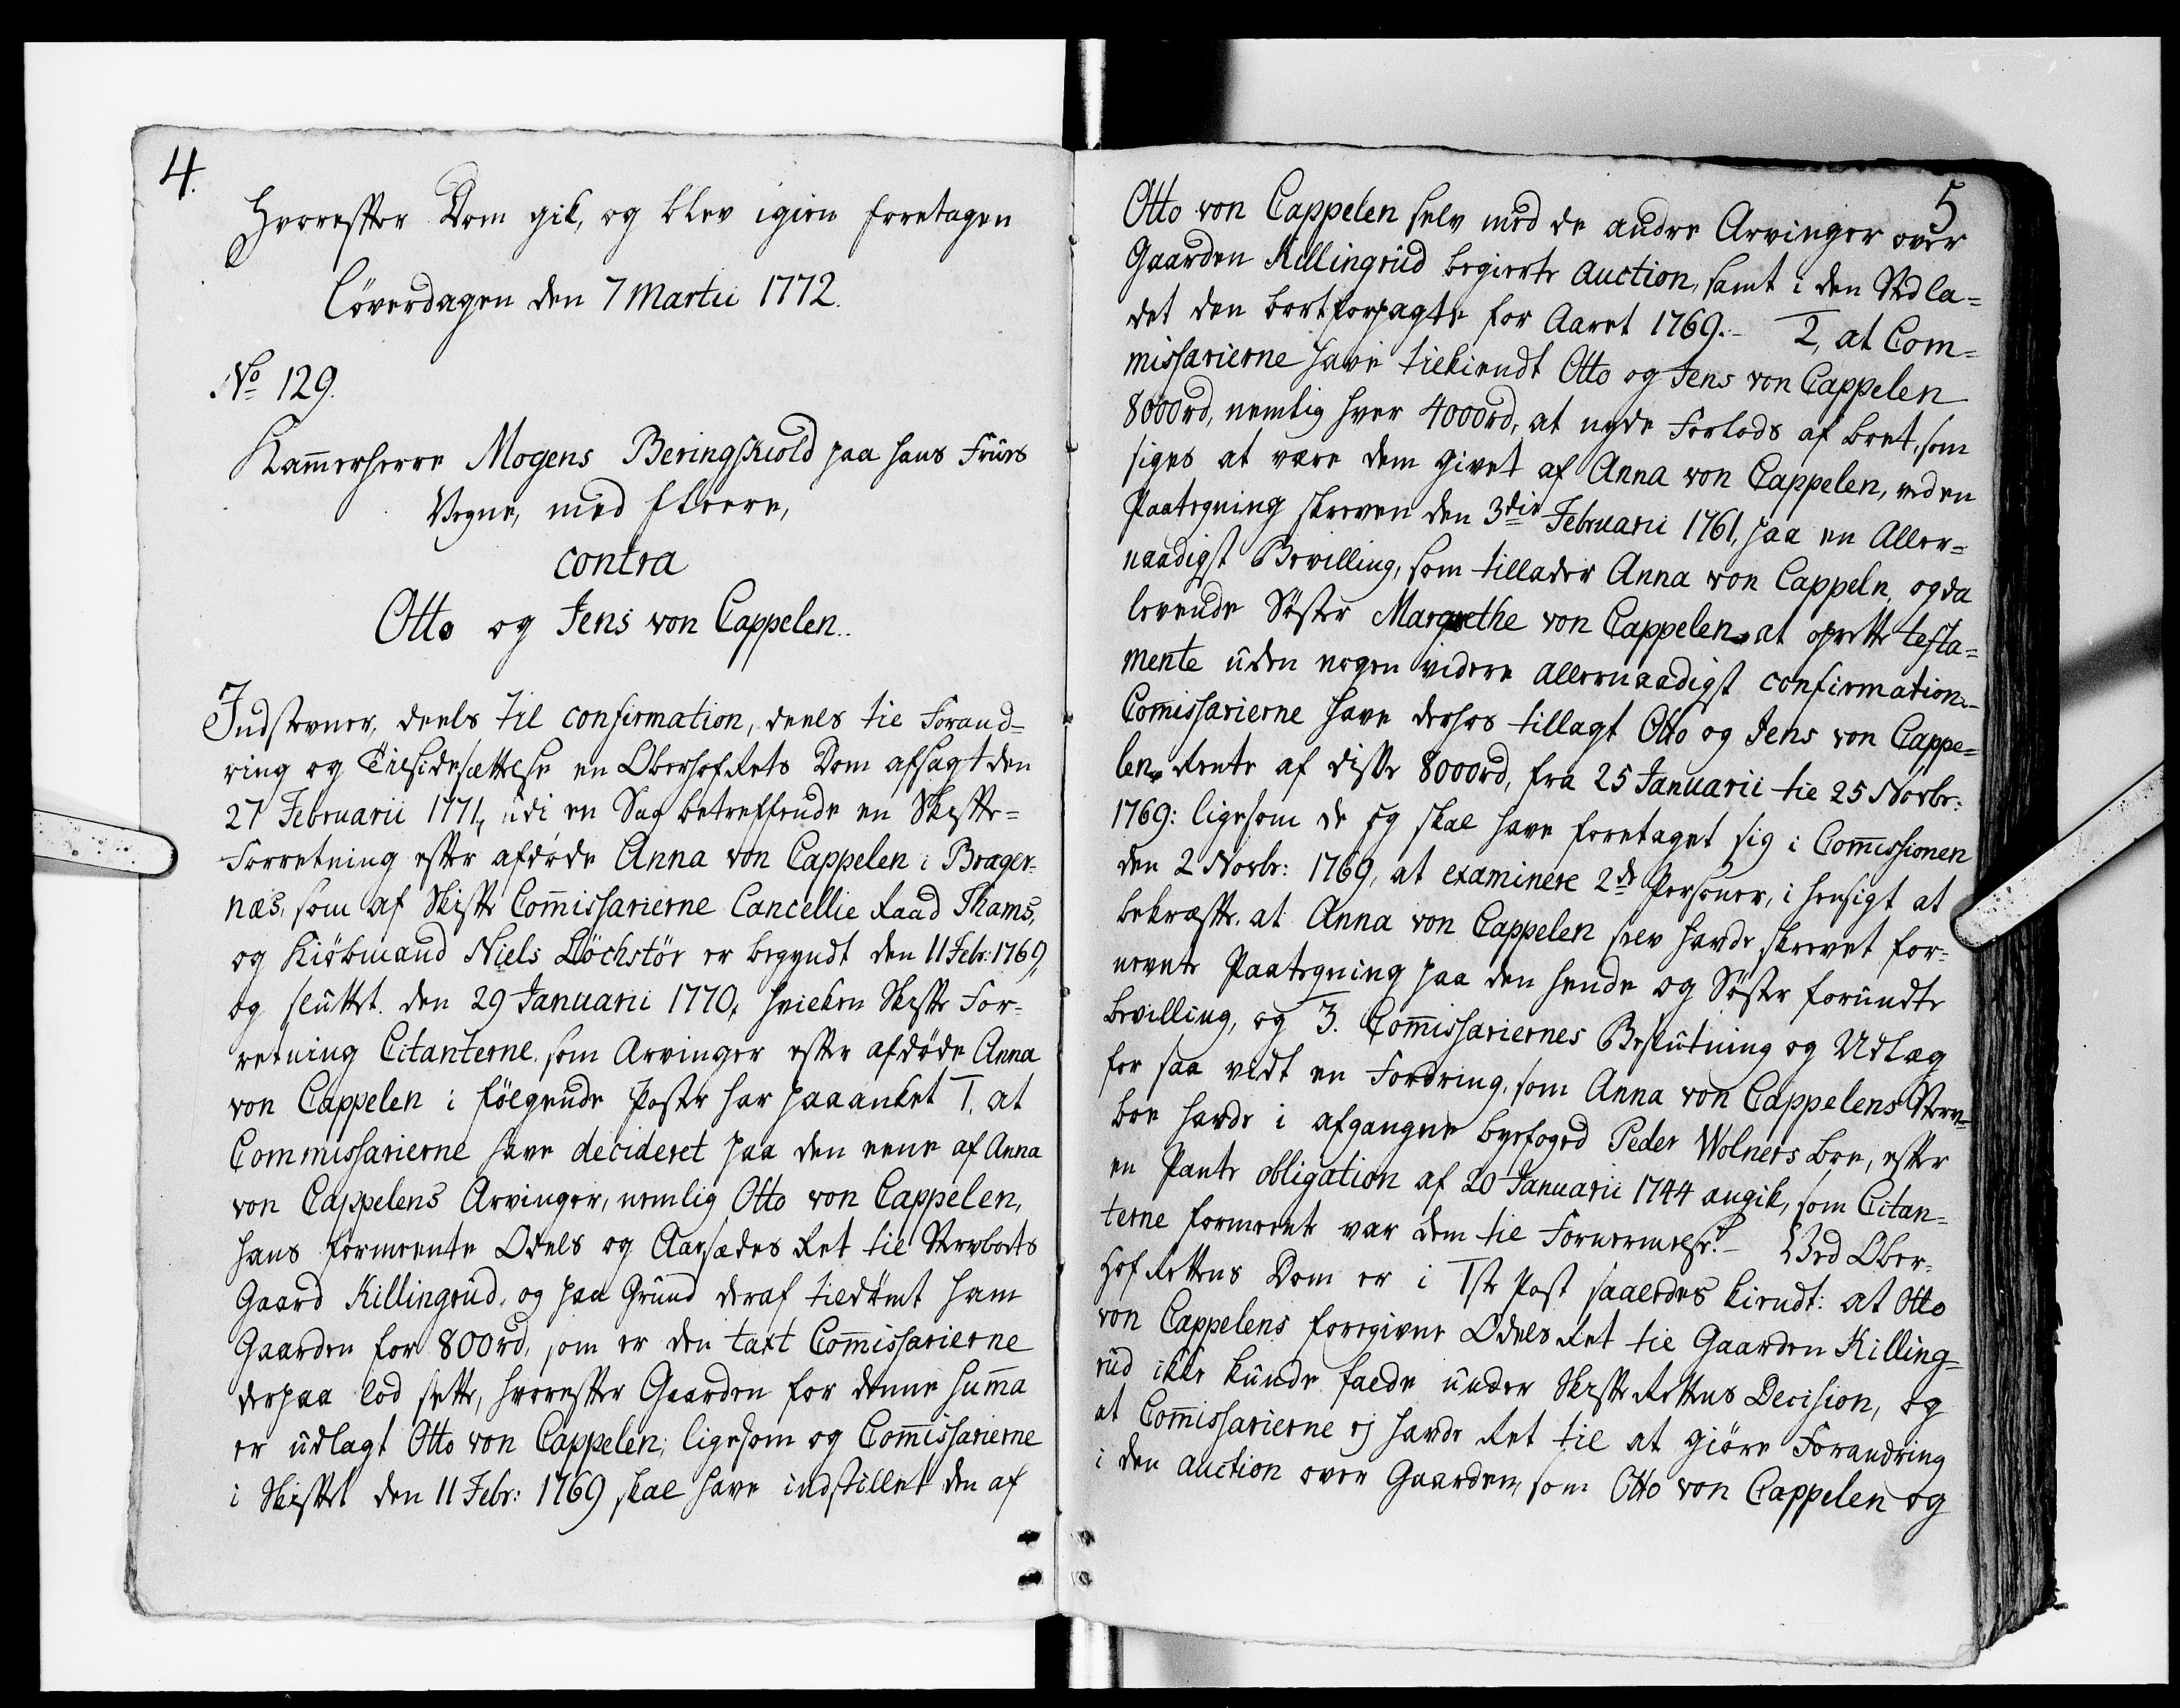 4.
Hvorefter Dom gik, og blev igien foretagen
Löverdagen den 7 Martii 1772.
No 129.
Kammerherre Mogens Beringskiold paa hans Frues
Vegne, med fleere,
contra
Otto og Jens von Cappelen.
Indstevner, deels til confirmation, deels til Forand-
ring og Tilsidesættelse en OberhofRets Dom afsagt den
27 Februarii 1771, udi en Sag betreffende en Skifte-
Forretning efter afdøde Anna von Cappelen i Brager-
næs, som af Skifte Commissarierne Cancellie Raad Thams,
og Kiöbmand Niels Döchstör er begyndt den 11 Febr: 1769,
og sluttet den 29 Januarii 1770, hvilken Skifte For-
retning Citanterne som Arvinger efter afdøde Anna
von Cappelen i fölgende Poster har paaanket 1, at
Commissarierne have decideret paa den eene af Anna
von Cappelens Arvinger, nemlig Otto von Cappelen,
hans formeente Odels og Aasædes Ret til Sterboets
Gaard Killingrud, og paa Grund deraf tildömt ham
Gaarden for 800rd, som er den taxt Commissarierne
derpaa lod sette, hvorefter Gaarden for denne Summa
er udlagt Otto von Cappelen; ligesom og Commissarierne
i Skiftet den 11 Febr: 1769 skal have indstillet den af
5
Otto von Cappelen selv med de andre Arvinger over
Gaarden Killingrud begierte auction, samt i den Sted la-
det den bortforpagte for Aaret 1769.- 2, at Com-
missarierne have tilkiendt Otto og Jens von Cappelen
8000rd, nemlig hver 4000rd, at nyde Forlods af Boet, som
siges at være dem givet af Anna von Cappelen, ved en
Paategning skreven den 3die Februarii 1761, paa en Aller-
naadigst Bevilling, som tillader Anna von Cappeln, og da
levende Söster Margrethe von Cappelen at oprette testa-
mente uden nogen videre allernaadigst confirmation.-
Commissarierne have derhos tillagt Otto og Jens von Cappe-
len Rente af disse 8000rd, fra 25 Januarii til 25 Novbr:
1769: ligesom de og skal have foretaget sig i Commissionen
den 2 Novbr: 1769, at examinere 2de Personer, i hensigt at
bekræfte at Anna von Cappelen selv havde skrevet for-
nevnte Paategning paa den hende og Söster forundte
bevilling, og 3. Commissariernes Beslutning og Udlæg
for saa vidt en Fordring, som Anna von Cappelens Sterv-
boe havde i afgangne byefoged Peder Wolners boe, efter
en Pante obligation af 20 Januarii 1744 angik, som Citan-
terne formeente var dem til Fornermelse.- Ved Ober-
Hof Rettens Dom er i 1ste Post saaledes kiendt: at Otto
von Cappelens foregivne Odels Ret til Gaarden Killing-
rud ikke kunde falde under Skifte Rettens Decision, og
at Commissarierne ej havde Ret til at giöre Forandring
i den auction over Gaarden, som Otto von Cappelen og